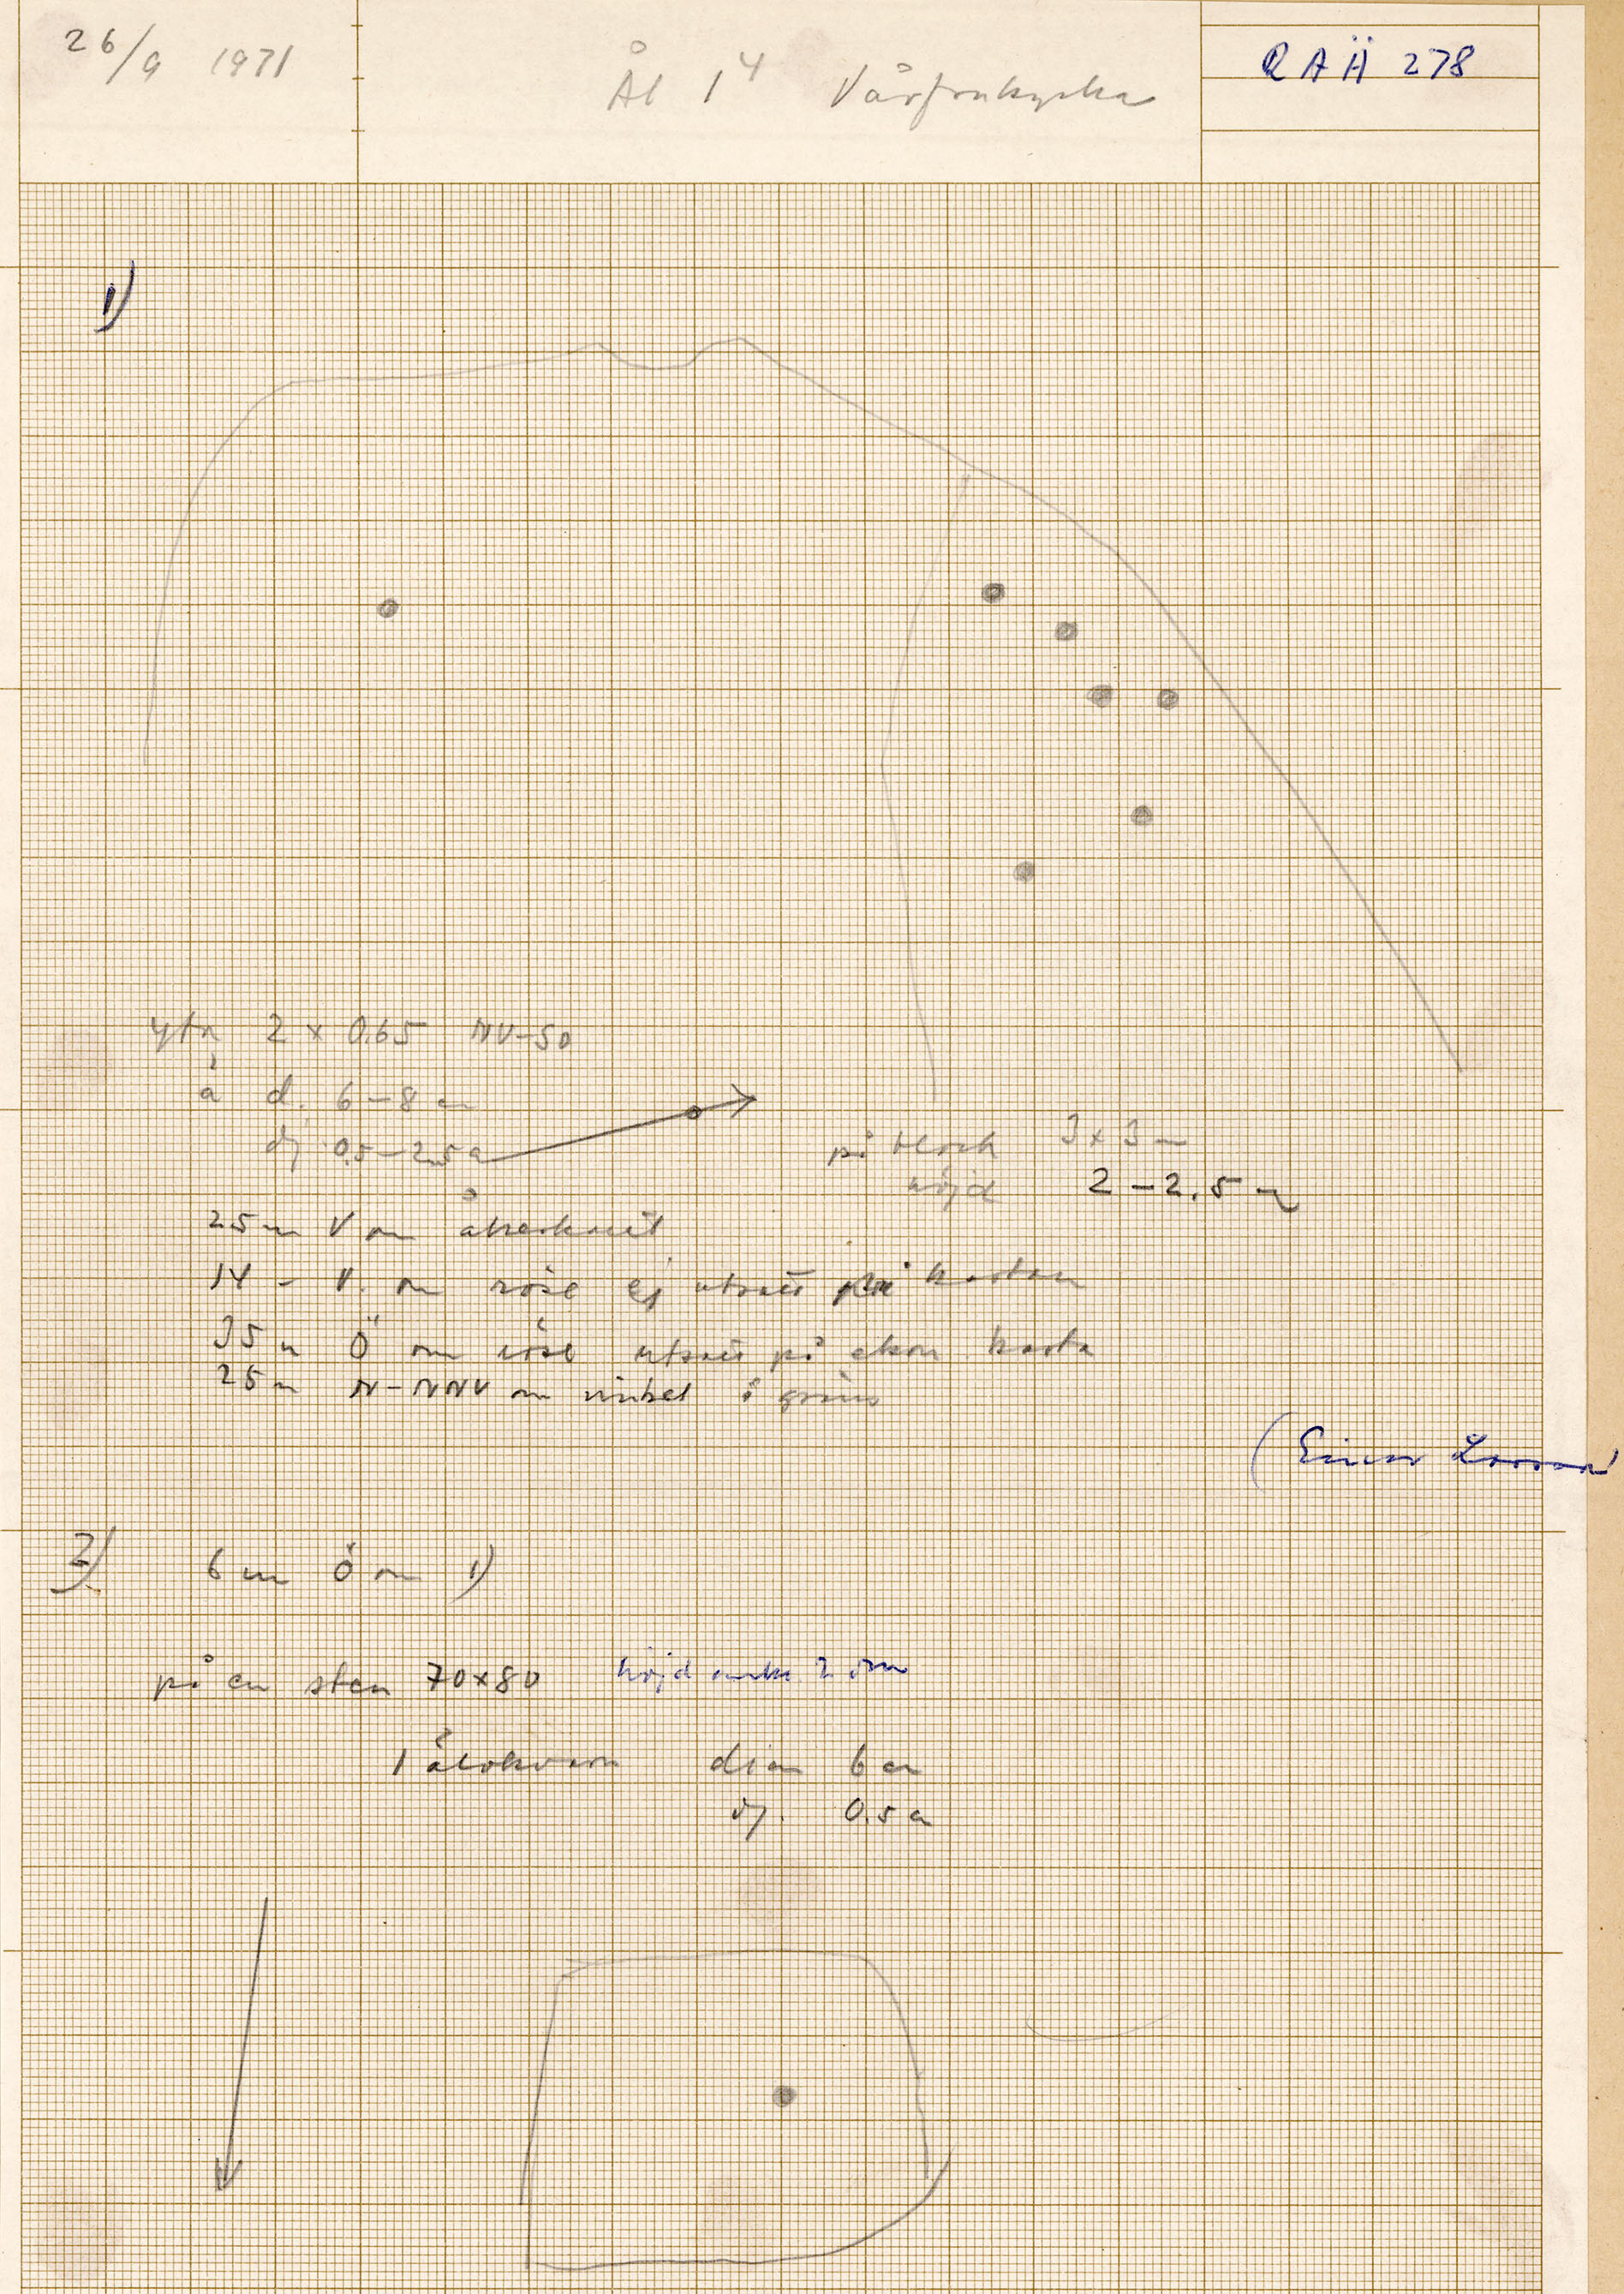 26/9 1971
Ål 1⁴ Vårfrukyrka
RAÄ 278
1)
yta 2 x 0.65 NV-SO
å d. 6-8
dj 0.5-2.5
på block 3x3 m
höjd 2-2.5 m
25 m V om åkerkant
14 - V. om röse ej utsatt på kartan
35 m Ö om röse utsatt på ekon karta
25 m N-NNV om vinkel i gräns
(Einar
2) 6 m Ö om 1)
på en sten 70x80 höjd
1 älvkvarn diam 6 cm
dj. 0.5 c